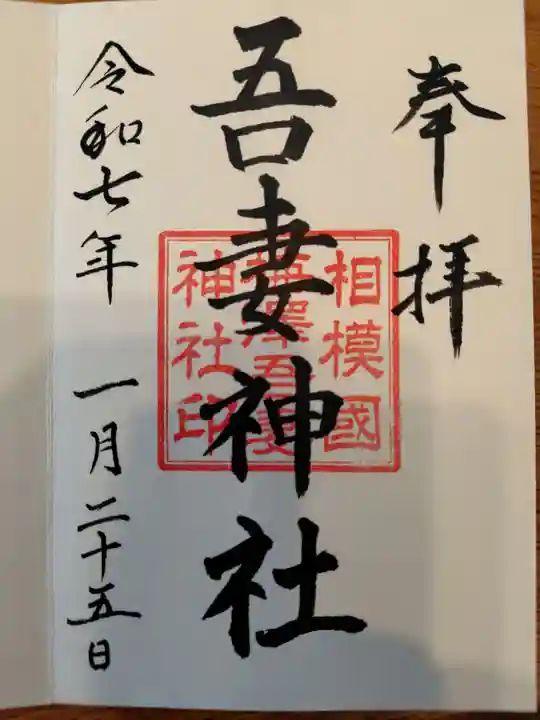 奉拝
吾妻神社
相模國
澤吾妻
神社印
令和七年 一月二十五日